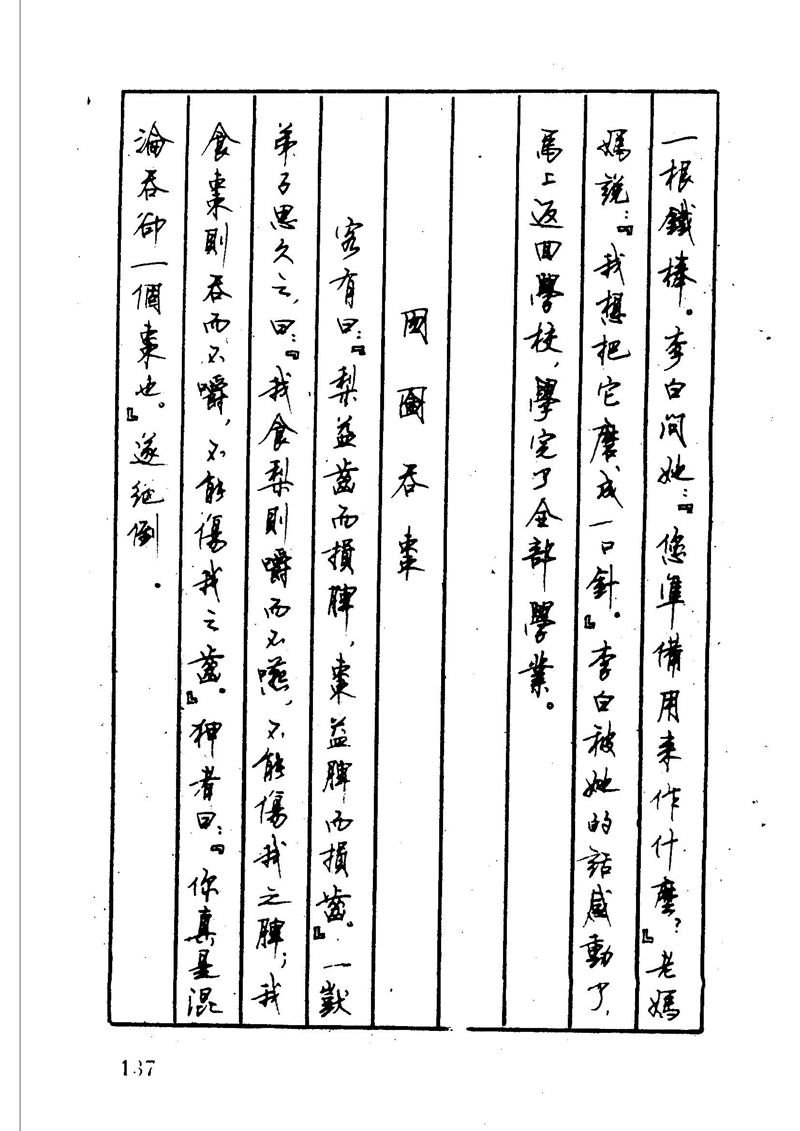 一根鐵棒。李白问她：『您準備用来作什麼？』老媽
媽說：『我想把它磨成一口針。』李白被她的話感動了，
馬上返回學校，學完了全部學業。
囫圇吞棗
客有曰：『梨益齒而損脾，棗益脾而損齒。』一獃
弟子思久之，曰：『我食梨則嚼而不嚥，不能傷我之脾；我
食棗則吞而不嚼，不能傷我之齒。』狎者曰：『你真是混
淪吞卻一個棗也。』遂絕倒。
137